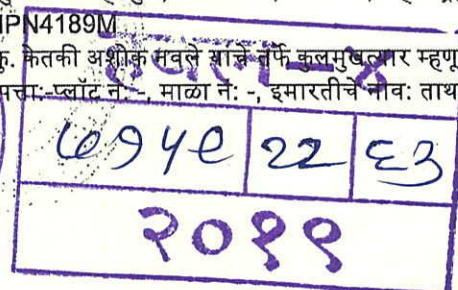 IPN4189M
कु. केतकी अशोक नवले यांचे तर्फे कुलमुखत्यार म्हणू
पत्ता:-प्लॉट नं: -, माळा नं: -, इमारतीचे नाव: ताथ
हवल-४
७१५९ २२ ६३
२०१९